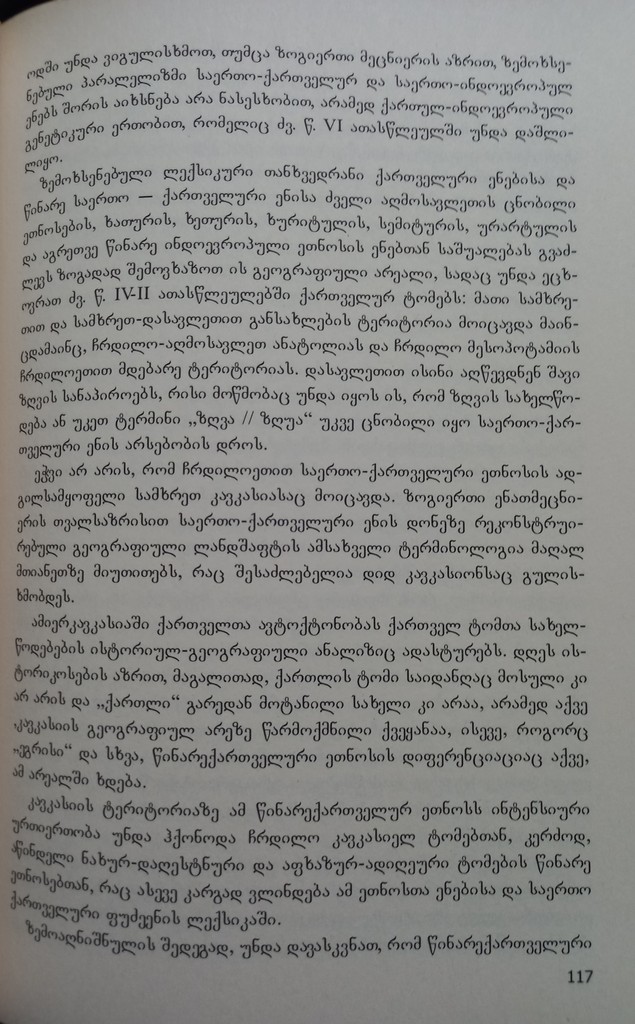 ოდში უნდა ვიგულისხმოთ, თუმცა ზოგიერთი მეცნიერის აზრით, ზემოხსე-
ნებული პარალელიზმი საერთო-ქართველურ და საერთო-ინდოევროპულ
ენებს შორის აიხსნება არა ნასესხობით, არამედ ქართულ-ინდოევროპული
გენეტიკური ერთობით, რომელიც ძვ. წ. VI ათასწლეულში უნდა დაშლი-
ლიყო.
ზემოხსენებული ლექსიკური თანხვედრანი ქართველური ენებისა და
წინარე საერთო — ქართველური ენისა ძველი აღმოსავლეთის ცნობილი
ეთნოსების, ხათურის, ხეთურის, ხურიტულის, სემიტურის, ურარტულის
და აგრეთვე წინარე ინდოევროპული ეთნოსის ენებთან საშუალებას გვაძ-
ლევს ზოგადად შემოვხაზოთ ის გეოგრაფიული არეალი, სადაც უნდა ეცხ-
ოვრათ ძვ. წ. IV-II ათასწლეულებში ქართველურ ტომებს: მათი სამხრე-
თით და სამხრეთ-დასავლეთით განსახლების ტერიტორია მოიცავდა მაინ-
ცდამაინც, ჩრდილო-აღმოსავლეთ ანატოლიას და ჩრდილო მესოპოტამიის
ჩრდილოეთით მდებარე ტერიტორიას. დასავლეთით ისინი აღწევდნენ შავი
ზღვის სანაპიროებს, რისი მოწმობაც უნდა იყოს ის, რომ ზღვის სახელწო-
დება ან უკეთ ტერმინი „ზღვა // ზღუა“ უკვე ცნობილი იყო საერთო-ქარ-
თველური ენის არსებობის დროს.
ეჭვი არ არის, რომ ჩრდილოეთით საერთო-ქართველური ეთნოსის ად-
გილსამყოფელი სამხრეთ კავკასიასაც მოიცავდა. ზოგიერთი ენათმეცნი-
ერის თვალსაზრისით საერთო-ქართველური ენის დონეზე რეკონსტრუი-
რებული გეოგრაფიული ლანდშაფტის ამსახველი ტერმინოლოგია მაღალ
მთიანეთზე მიუთითებს, რაც შესაძლებელია დიდ კავკასიონსაც გულის-
ხმობდეს.
ამიერკავკასიაში ქართველთა ავტოქტონობას ქართველ ტომთა სახელ-
წოდებების ისტორიულ-გეოგრაფიული ანალიზიც ადასტურებს. დღეს ის-
ტორიკოსების აზრით, მაგალითად, ქართლის ტომი საიდანღაც მოსული კი
არ არის და „ქართლი“ გარედან მოტანილი სახელი კი არაა, არამედ აქვე
კავკასიის გეოგრაფიულ არეზე წარმოქმნილი ქვეყანაა, ისევე, როგორც
„ეგრისი“ და სხვა, წინარექართველური ეთნოსის დიფერენციაციაც აქვე,
ამ არეალში ხდება.
კავკასიის ტერიტორიაზე ამ წინარექართველურ ეთნოსს ინტენსიური
ურთიერთობა უნდა ჰქონოდა ჩრდილო კავკასიელ ტომებთან, კერძოდ,
აწინდელი ნახურ-დაღესტნური და აფხაზურ-ადიღეური ტომების წინარე
ეთნოსებთან, რაც ასევე კარგად ვლინდება ამ ეთნოსთა ენებისა და საერთო
ქართველური ფუძეენის ლექსიკაში.
ზემოაღნიშნულის შედეგად, უნდა დავასკვნათ, რომ წინარექართველური
117